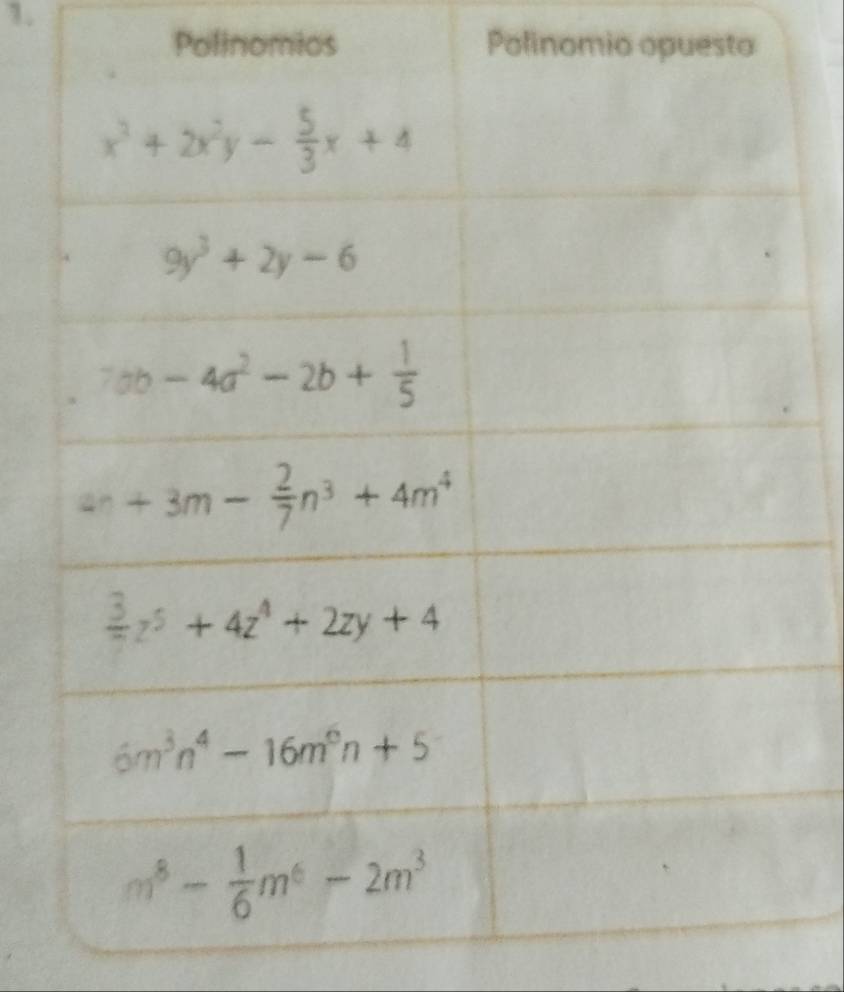 1.
Polinomios Polinomio opuesto
+ 2x²y − 5/3 x + 4
9y³ + 2y − 6
7ab − 4a² − 2b + 1/5
+ 3m − 2/7 n³ + 4m⁴
z⁵ + 4z⁴ + 2zy + 4
6m³n⁴ − 16m⁶n + 5
m⁸ − 1/6 m⁶ − 2m³